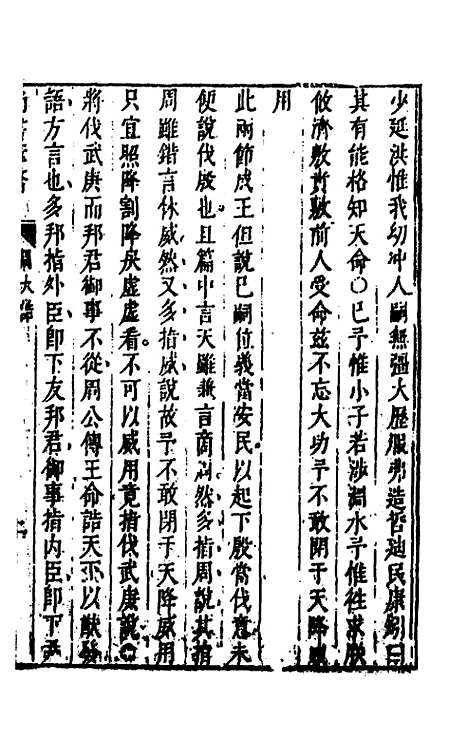 少延洪惟我幼冲人嗣無疆大歷服弗造哲迪民康矧曰
其有能格知天命○已予惟小子若涉淵水予惟往求朕
攸濟敷賁敷前人受命茲不忘大功予不敢閉于天降威
用
此兩節成王但說已嗣位義當安民以起下殷當伐意未
便說伐殷也且篇中言天雖兼言商周然多指周說其指
周雖錯言休威然又多指威說故予不敢閉于天降威用
只宜照降割降戾虛虛看不可以威用竟指伐武庚說○
將伐武庚而邦君御事不從周公傳王命誥天下以猷發
語方言也多邦指外臣即下友邦君御事指内臣即下
大誥